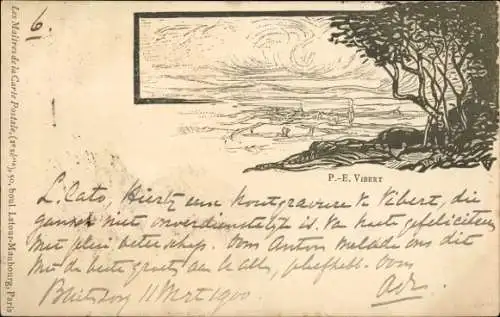 6.
Les Maîtres de la Carte Postale, 50, boul. Latour-Maubourg, Paris
P.-E. VIBERT
L. Cato, Hiertz eene houtgravure v. Vibert, die
gansch niet onverdienstelijk is. Van harte gefeliciteer
met beterschap. Oom Anton melde ons dit
Met de beste groet aan allen, Oom
11 Mrt 1900